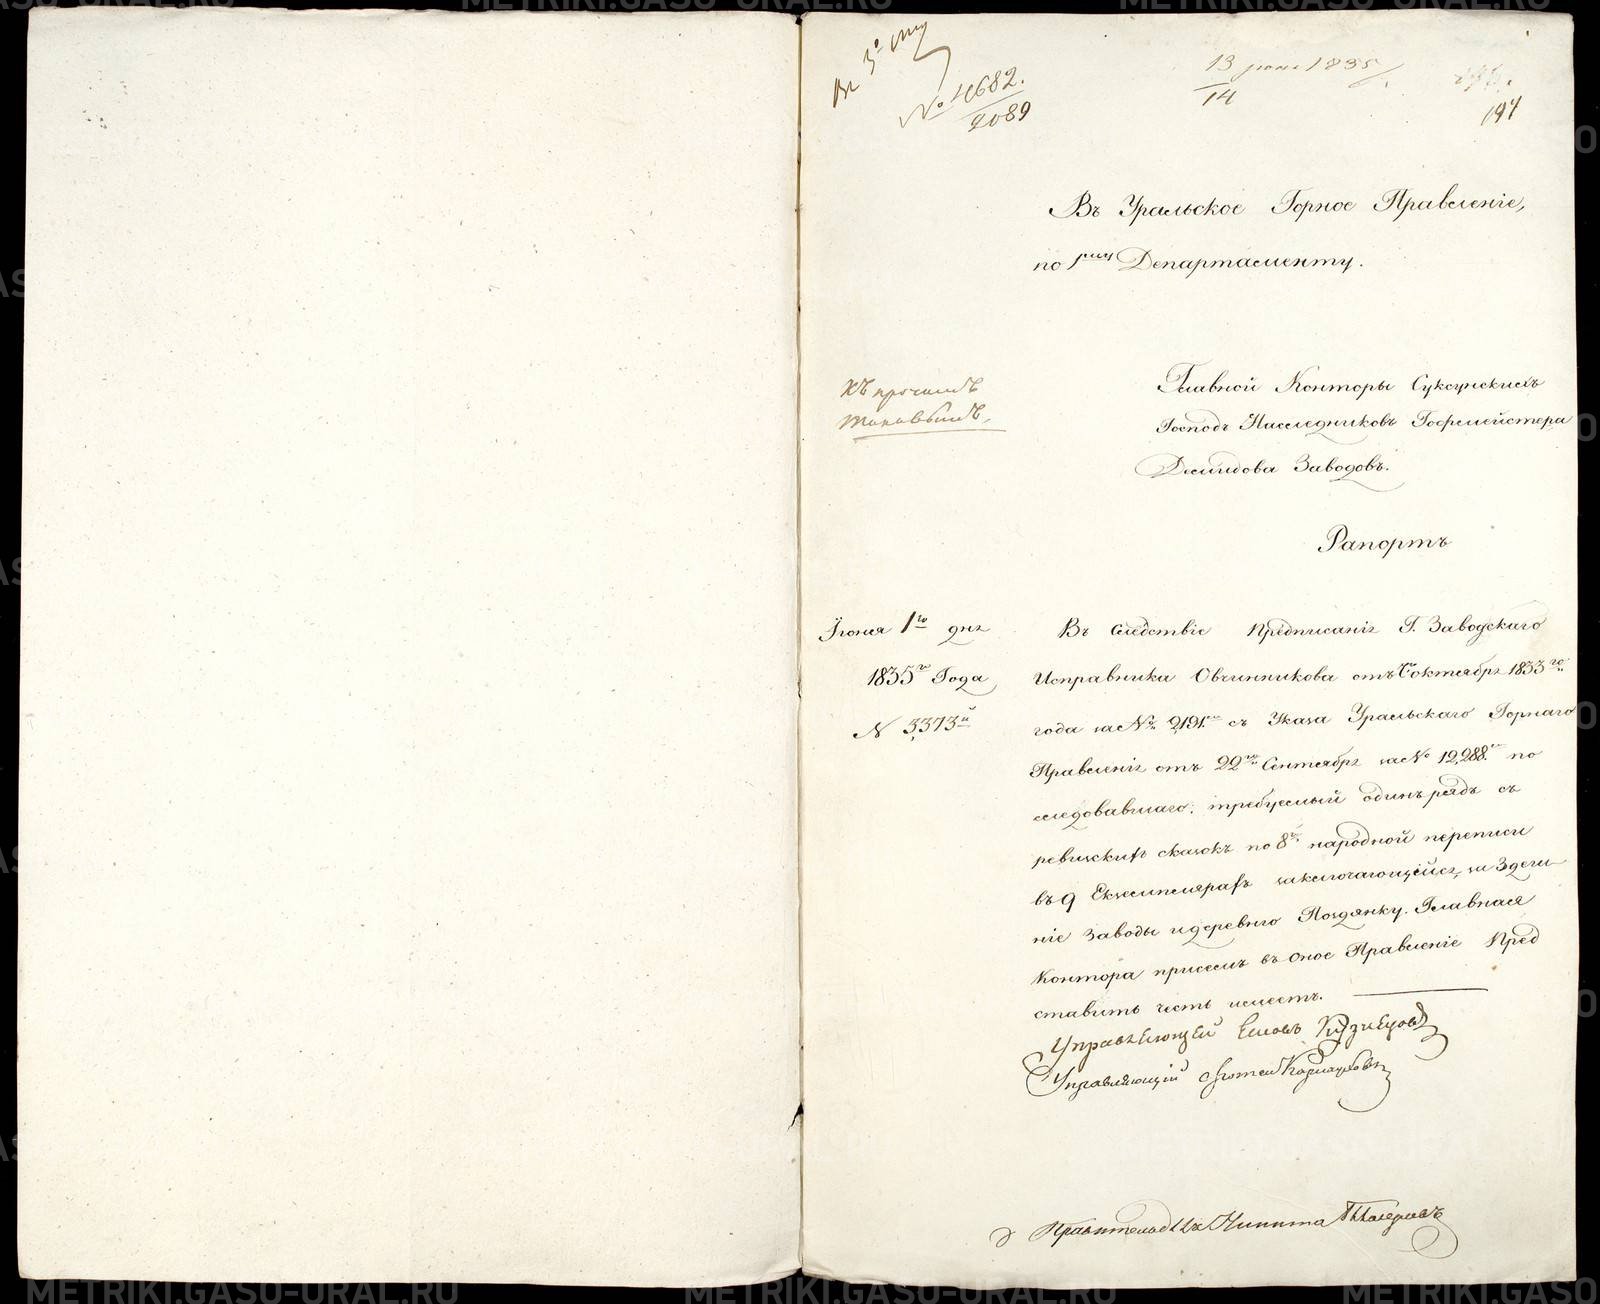 № 4682.
2089
13 июня 1835
14
194
Въ Уральское Горное Правленіе,
по 1му Департаменту.
Къ прочимъ
таковымъ.
Главной Конторы Суксунскихъ
Господъ Наследниковъ Гофмейстера
Демидова Заводовъ.
Рапортъ
Іюня 1го дня
1835го Года
№ 3373й
Въ следствіе Предписанія Г. Заводскаго
Исправника Овчинникова отъ октября 1833го
года за № 2191м съ Указа Уральскаго Горнаго
Правленія отъ 22го Сентября за № 12,288м по
следовавшаго, требуемый одинъ рядъ съ
ревизскихъ сказокъ по 8й народной переписи
въ 9 Екземплярахъ заключающейся, за Здеш
ніе Заводы и деревню Поздянку. Главная
Контора присемъ въ оное Правленіе Пред
ставить честь имеетъ.
Управляющей Кузнецовъ
Управляющій
Никита